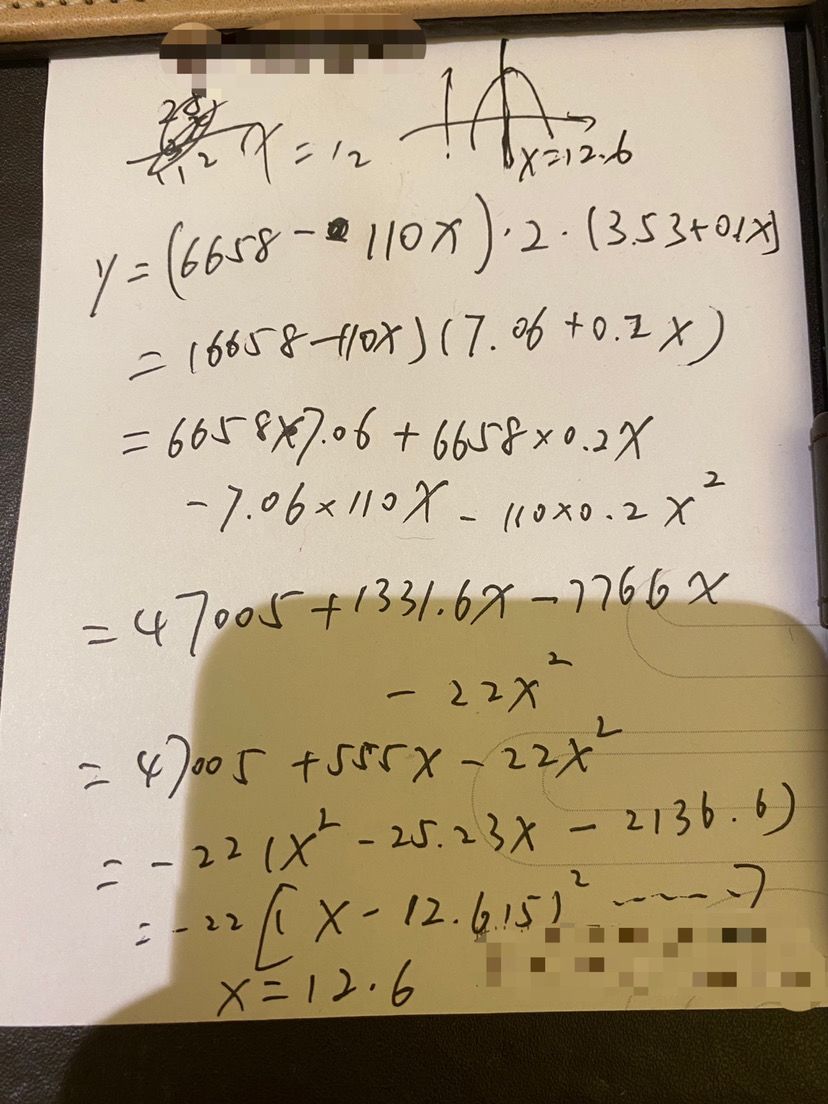 x = 12
x=12.6
y = (6658 - 110x)·2·(3.53+0.1x)
= (6658-110x)(7.06+0.2x)
= 6658×7.06 + 6658×0.2x
- 7.06×110x - 110×0.2x²
= 47005 + 1331.6x - 7766x
- 22x²
= 47005 + 555x - 22x²
= -22(x² - 25.23x - 2136.6)
= -22[(x - 12.615)² ......]
x = 12.6